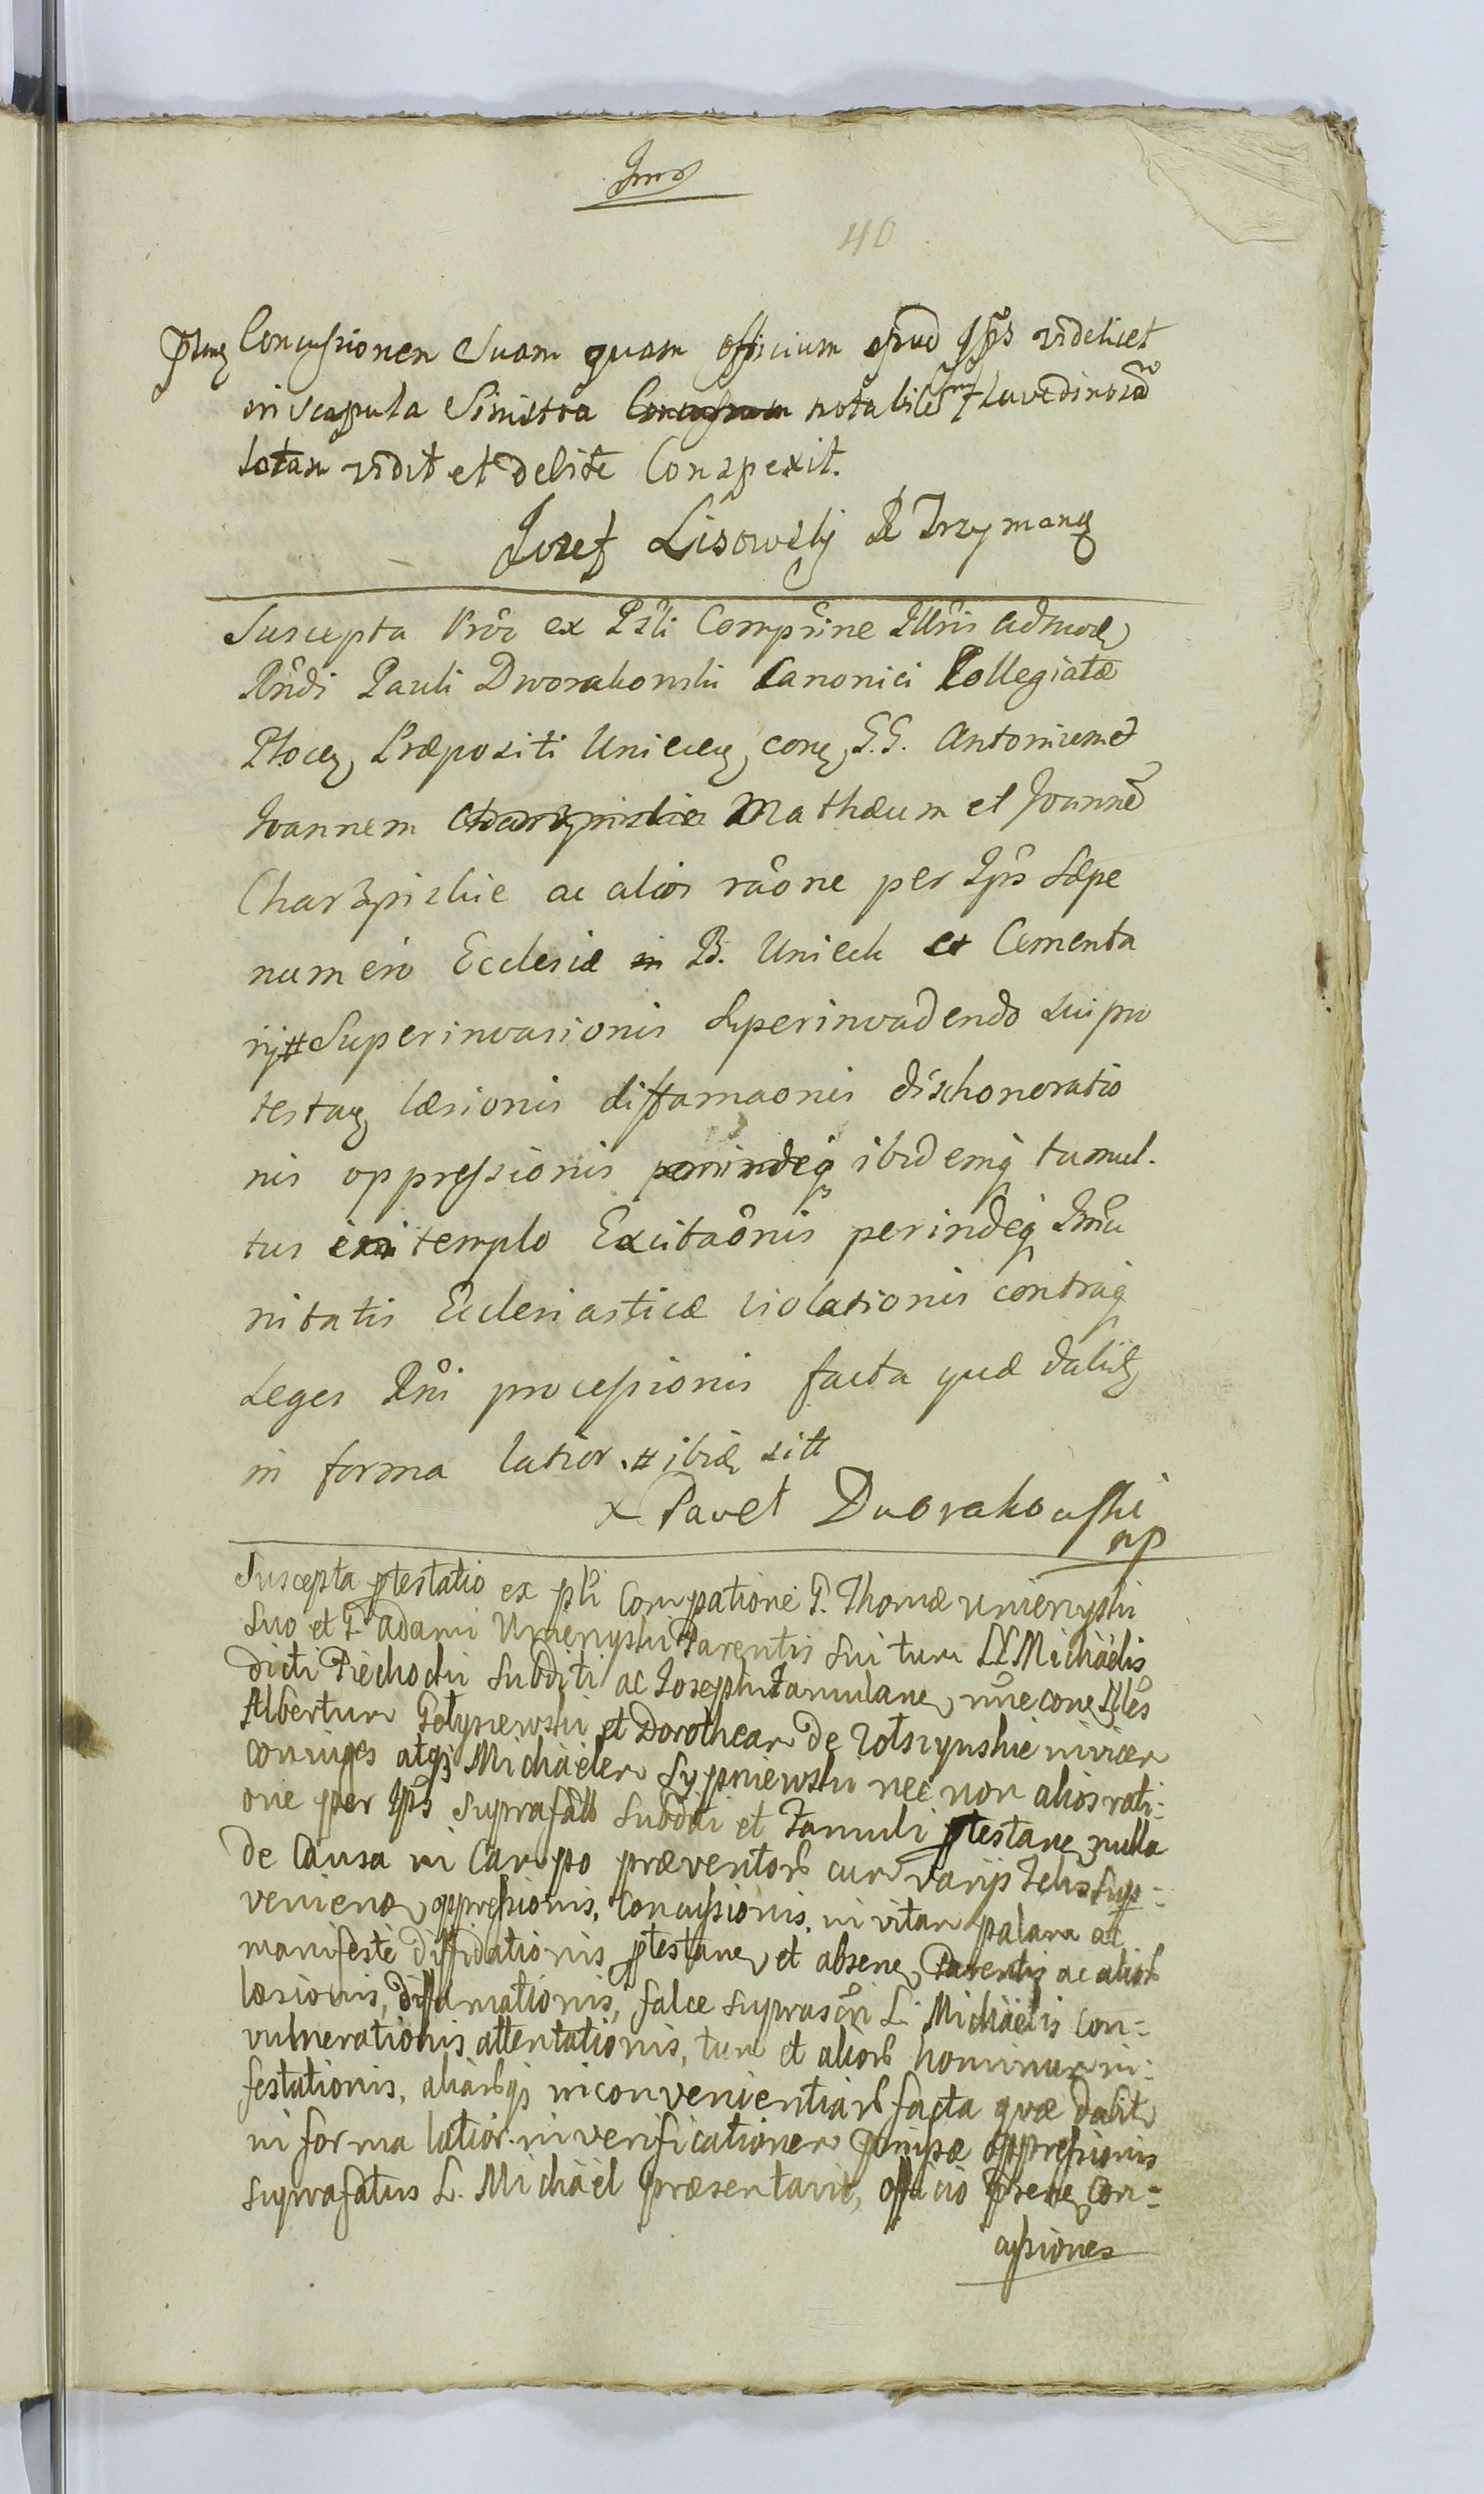 40
Concussionem Suam quam officium apud Ips videlicet
in scapula Sinistra notabilem Luvedinosã
totam vidit et debite Conspexit.
Jozef Lisowskj
Suscepta Prõc ex Psli Compũne Illũris admod
Rndi Pauli Dworakowski Canonici Collegiatæ
Plocen Præpositi Uniecen, con G.G. Antonium et
Joannem Charzpiskie Mathæum et Joannẽ
Charzpiskie ac alios raône per Ips sæpe
numero Ecclesiæ in B. Unieck et Cementa
rij # Superinvasionis superinvadendo sui pro
testan læsionis diffamaonis dischonoratio
nis oppressionis perindeq ibidemq tumul.
tus in templo Excitaônis perindeq Imũ
nitatis Ecclesiasticæ violationis contraq
Leges Rni processionis facta quæ dabitr
in forma latior. # ibid sitt
X Paveł Dworakowski
mp
Suscepta ptestatio ex psli Compatione G. Thomæ Umienyski
suo et G. Adami Umienyski Parentis sui tum LL Michäelis
dicti Piechocki subditi ac Josephi Famulane, nõe con Illes
Albertum Gołyniewski et Dorotheam de
coniuges atq Michäelem Sypniewski nec non alios rati:
one per Ips suprafatt subditi et Famuli ptestane nulla
de Causa in Campo præventor cum varijs Telis sup:
veniend, oppressionis, Concussionis, in vitam palam ac
manifestè diffidationis, ptestane, et absene, Parentis ac alior
læsionis, diffamationis, falce suprascri L. Michäelis con:
vulnerationis attentationis, tum et alior hominum in:
festationis, aliarq inconvenientiar facta quæ dabitr
in forma latior. in verificationem pmisæ oppressionis
suprafatus L. Michäel præsentavit, officio psene, Con:
cussiones